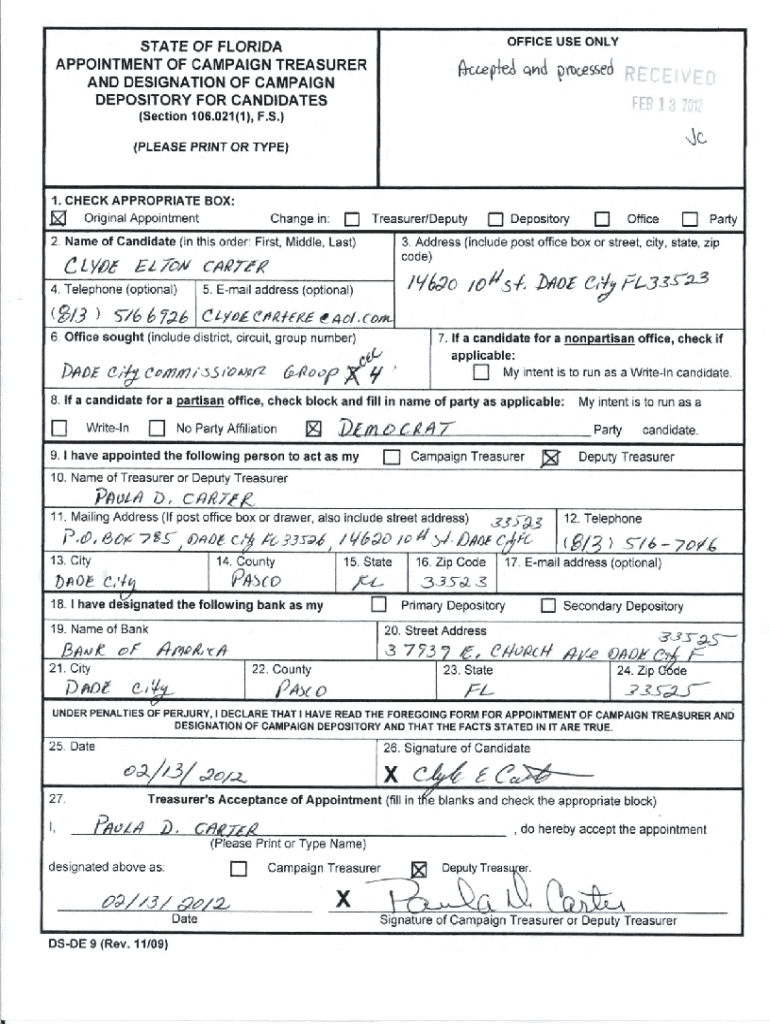 STATE OF FLORIDA
APPOINTMENT OF CAMPAIGN TREASURER
AND DESIGNATION OF CAMPAIGN
DEPOSITORY FOR CANDIDATES
(Section 106.021(1), F.S.)
(PLEASE PRINT OR TYPE)
OFFICE USE ONLY
Accepted and processed
RECEIVED
FEB 13 2012
JC
1. CHECK APPROPRIATE BOX:
☒ Original Appointment Change in: ☐ Treasurer/Deputy ☐ Depository ☐ Office ☐ Party
2. Name of Candidate (in this order: First, Middle, Last)
CLYDE ELTON CARTER
3. Address (include post office box or street, city, state, zip code)
14620 10th St. DADE City FL 33523
4. Telephone (optional)
(813) 5166926
5. E-mail address (optional)
CLYDECARTERE@AOL.com
6. Office sought (include district, circuit, group number)
DADE City COMMISSIONER GROUP 4 CEC
7. If a candidate for a nonpartisan office, check if applicable:
☐ My intent is to run as a Write-In candidate.
8. If a candidate for a partisan office, check block and fill in name of party as applicable: My intent is to run as a
☐ Write-In ☐ No Party Affiliation ☒ DEMOCRAT Party candidate.
9. I have appointed the following person to act as my ☐ Campaign Treasurer ☒ Deputy Treasurer
10. Name of Treasurer or Deputy Treasurer
PAULA D. CARTER
11. Mailing Address (If post office box or drawer, also include street address) 33523
P.O. BOX 785, DADE City FL 33526, 14620 10th St. DADE City FL
12. Telephone
(813) 516-7046
13. City
DADE City
14. County
PASCO
15. State
FL
16. Zip Code
33523
17. E-mail address (optional)
18. I have designated the following bank as my ☐ Primary Depository ☐ Secondary Depository
19. Name of Bank
BANK OF AMERICA
20. Street Address 33525
37939 E. CHURCH Ave DADE City F
21. City
DADE City
22. County
PASCO
23. State
FL
24. Zip Code
33525
UNDER PENALTIES OF PERJURY, I DECLARE THAT I HAVE READ THE FOREGOING FORM FOR APPOINTMENT OF CAMPAIGN TREASURER AND
DESIGNATION OF CAMPAIGN DEPOSITORY AND THAT THE FACTS STATED IN IT ARE TRUE.
25. Date
02/13/2012
26. Signature of Candidate
X Clyde E Carter
27. Treasurer's Acceptance of Appointment (fill in the blanks and check the appropriate block)
I, PAULA D. CARTER , do hereby accept the appointment
(Please Print or Type Name)
designated above as: ☐ Campaign Treasurer ☒ Deputy Treasurer.
02/13/2012 X Paula D. Carter
Date Signature of Campaign Treasurer or Deputy Treasurer
DS-DE 9 (Rev. 11/09)